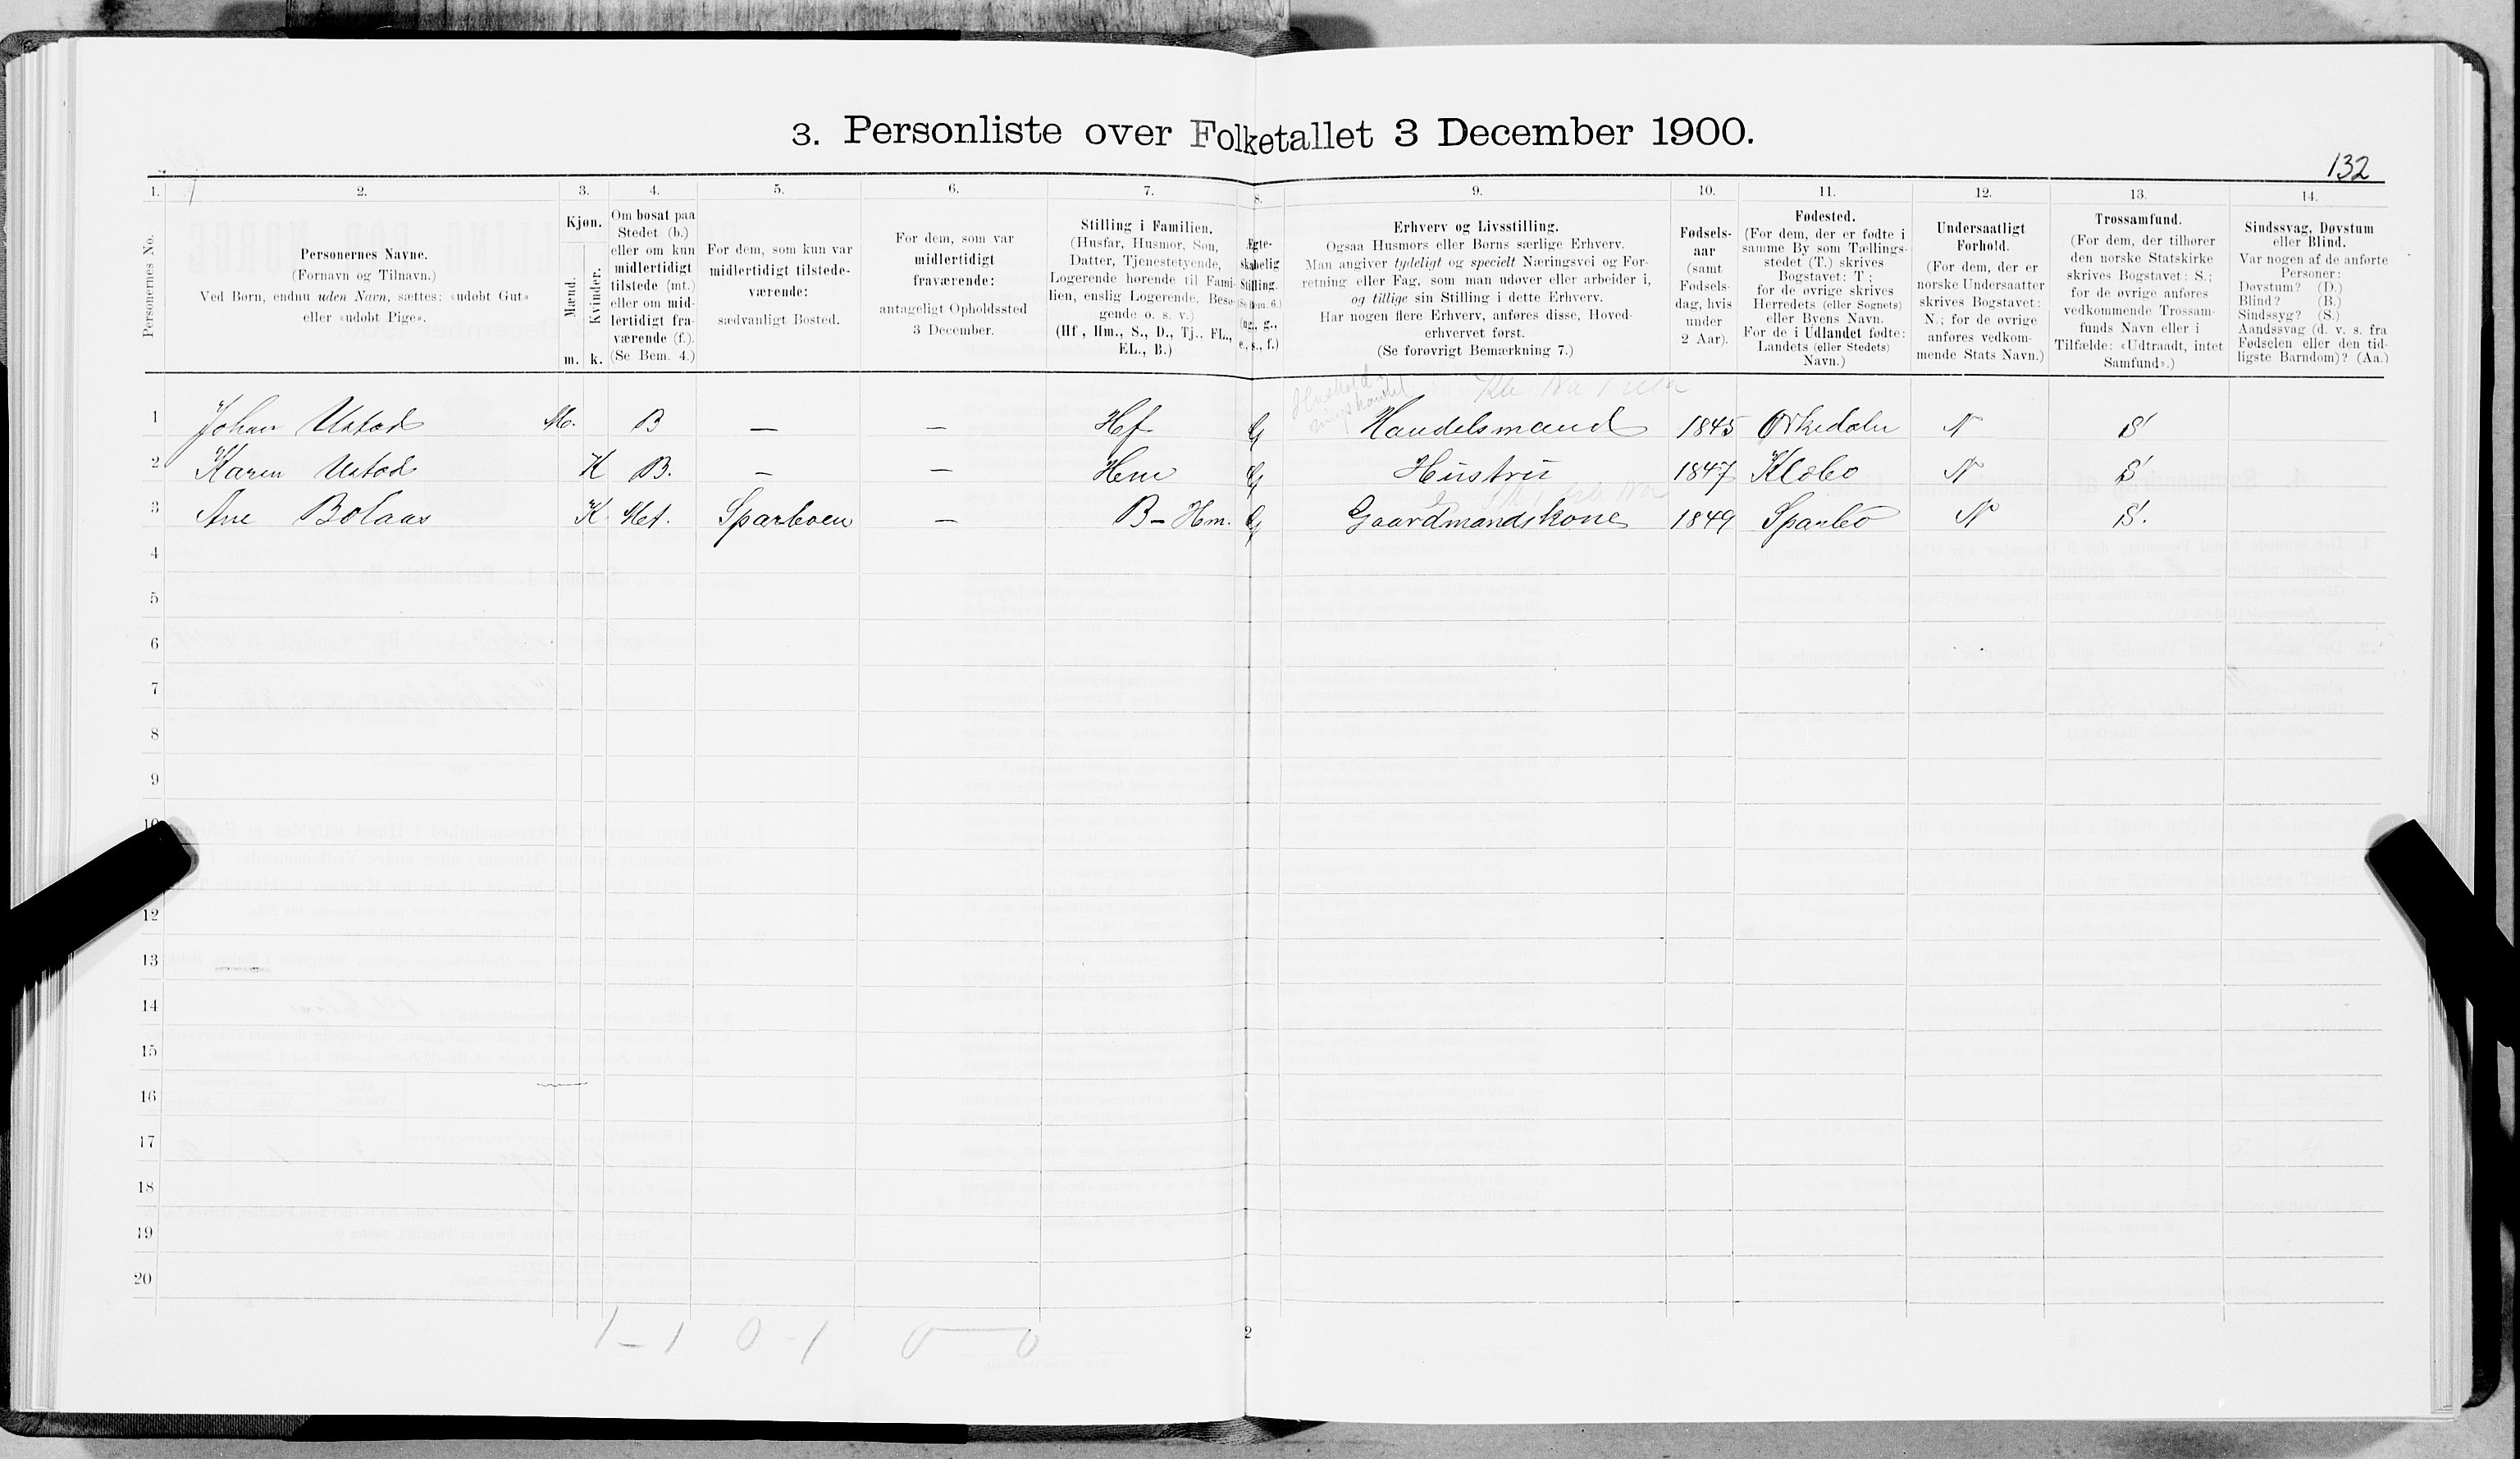 3. Personliste over Folketallet 3 December 1900.
132
1. 2. 3. 4. 5. 6. 7. 8. 9. 10. 11. 12. 13. 14.
Personernes No.
Personernes Navne.
(Fornavn og Tilnavn.)
Ved Børn, endnu uden Navn, sættes: «udøbt Gut»
eller «udøbt Pige».
Kjøn.
Mænd.
Kvinder.
m. k.
Om bosat paa
Stedet (b.)
eller om kun
midlertidigt
tilstede (mt.)
eller om mid-
lertidigt fra-
værende (f.).
(Se Bem. 4.)
For dem, som kun var
midlertidigt tilstede-
værende:
sædvanligt Bosted.
For dem, som var
midlertidigt
fraværende:
antageligt Opholdssted
3 December.
Stilling i Familien.
(Husfar, Husmor, Søn,
Datter, Tjenestetyende,
Logerende hørende til Fami-
lien, enslig Logerende, Besø-
gende o. s. v.)
(Hf., Hm., S., D., Tj., FL.,
EL., B.)
Ægte-
skabelig
Stilling.
(Se Bem. 6.)
(ug., g.,
e., s., f.)
Erhverv og Livsstilling.
Ogsaa Husmors eller Børns særlige Erhverv.
Man angiver tydeligt og specielt Næringsvei og For-
retning eller Fag, som man udøver eller arbeider i,
og tillige sin Stilling i dette Erhverv.
Har nogen flere Erhverv, anføres disse, Hoved-
erhvervet først.
(Se forøvrigt Bemærkning 7.)
Fødsels-
aar
(samt
Fødsels-
dag, hvis
under
2 Aar).
Fødested.
(For dem, der er fødte i
samme By som Tællings-
stedet (T.) skrives
Bogstavet: T;
for de øvrige skrives
Herredets (eller Sognets)
eller Byens Navn.
For de i Udlandet fødte:
Landets (eller Stedets)
Navn.)
Undersaatligt
Forhold.
(For dem, der er
norske Undersaatter
skrives Bogstavet:
N.; for de øvrige
anføres vedkom-
mende Stats Navn.)
Trossamfund.
(For dem, der tilhører
den norske Statskirke
skrives Bogstavet: S.;
for de øvrige anføres
vedkommende Trossam-
funds Navn eller i
Tilfælde: «Udtraadt, intet
Samfund».)
Sindssvag, Døvstum
eller Blind.
Var nogen af de anførte
Personer:
Døvstum? (D.)
Blind? (B.)
Sindssyg? (S.)
Aandssvag (d. v. s. fra
Fødselen eller den tid-
ligste Barndom)? (Aa.)
1 Johan Ustad M. B — — Hf G Handelsmand 1845 Orkedalen N S
2 Karen Ustad K B. — — Hm G Hustru 1847 Klæbo N S
3 Ane Bolaas K. Mt. Sparboen — B-Hm. G Gaardmandskone 1849 Sparbo N S.
4
5
6
7
8
9
10
12
13
14
15
16
17
18
19
20
1-1 0-1 0—0
2